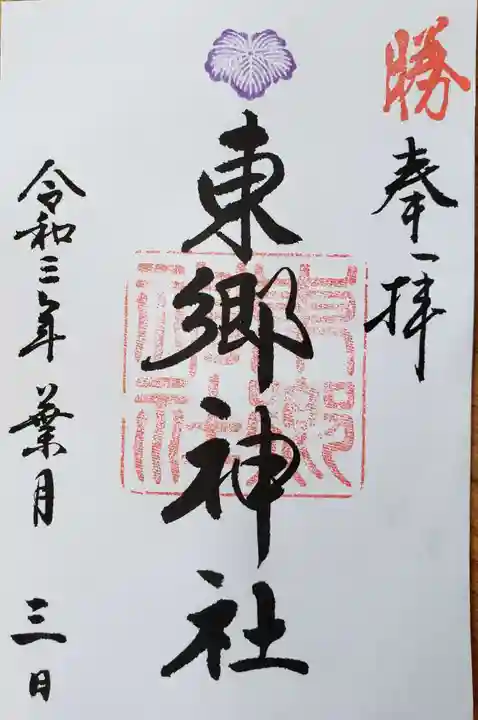 勝
奉拝
東郷神社
東郷神社
令和三年葉月 三日